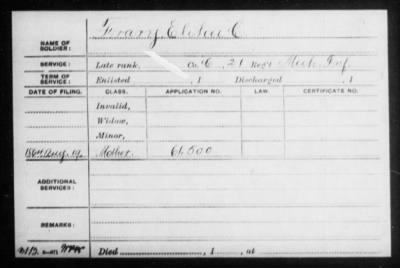 NAME OF SOLDIER: Franz, Elihu C
SERVICE: Late rank, Co. C, 21 Reg't Mich. Inf.
TERM OF SERVICE: Enlisted , 1 Discharged , 1
DATE OF FILING. CLASS. APPLICATION NO. LAW. CERTIFICATE NO.
Invalid,
Widow,
Minor,
1864 Aug. 19. Mother. 61,500
ADDITIONAL SERVICES:
REMARKS:
Died , 1 , at